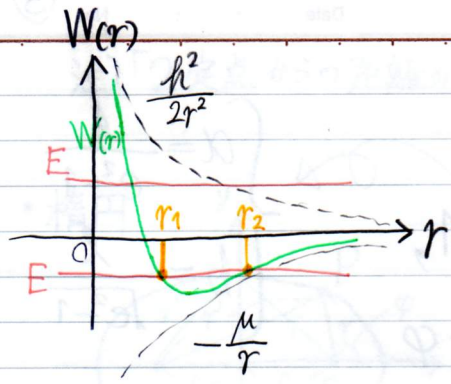 W(r)
h²
2r²
W(r)
E
r₁ r₂
r
0
E
-μ/r